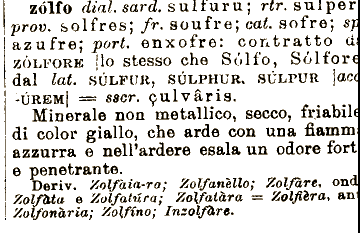 zólfo dial. sard. sulfuru; rtr. sulper
prov. solfres; fr. soufre; cat. sofre; sp
azufre; port. enxofre: contratto d
ZÓLFORE [lo stesso che Sólfo, Sólfore
dal lat. SÚLFUR, SÚLPHUR, SÚLPUR [acc
-ÚREM] = sscr. çulvâris.
Minerale non metallico, secco, friabile
di color giallo, che arde con una fiamm
azzurra e nell'ardere esala un odore fort
e penetrante.
Deriv. Zolfaia-ro; Zolfanèllo; Zolfàre, ond
Zolfàta e Zolfatúra; Zolfatàra = Zolfièra, an
Zolfonària; Zolfíno; Inzolfàre.